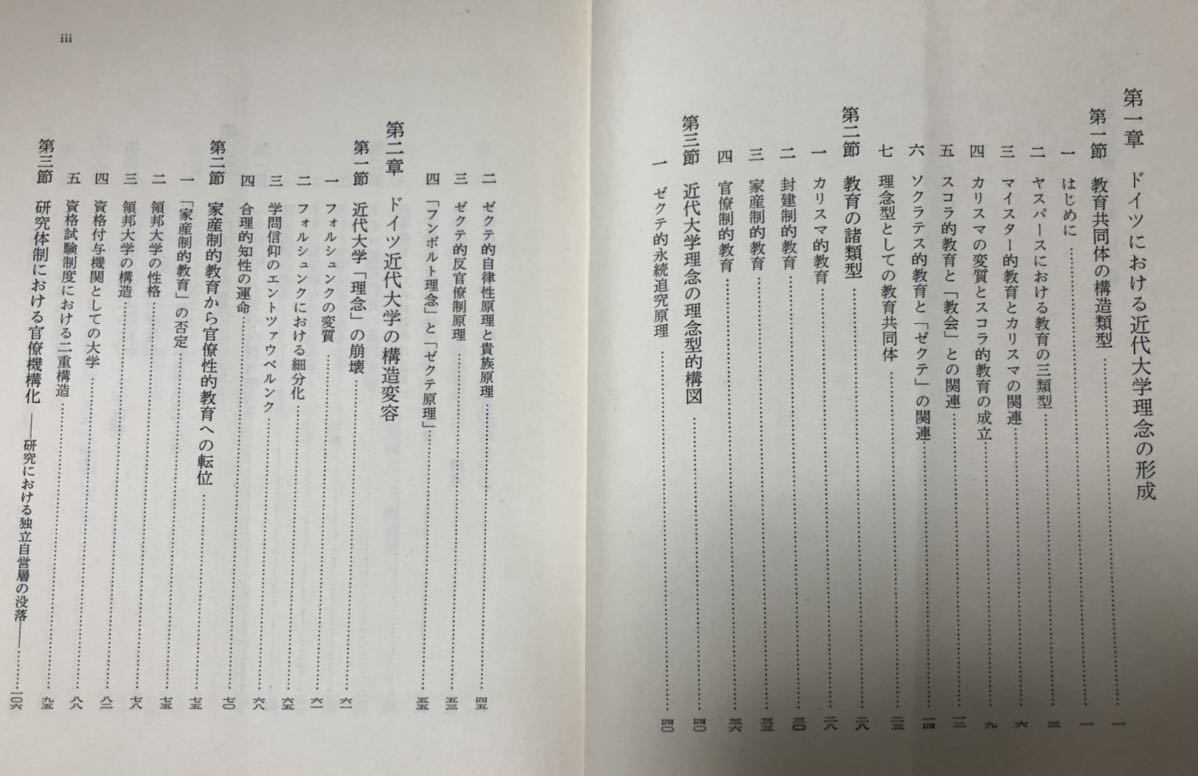 第一章 ドイツにおける近代大学理念の形成
第一節 教育共同体の構造類型……一
一 はじめに……一
二 ヤスパースにおける教育の三類型……三
三 マイスター的教育とカリスマの関連……六
四 カリスマの変質とスコラ的教育の成立……九
五 スコラ的教育と「教会」との関連……一二
六 ソクラテス的教育と「ゼクテ」の関連……一四
七 理念型としての教育共同体……二三
第二節 教育の諸類型……二八
一 カリスマ的教育……二八
二 封建制的教育……三〇
三 家産制的教育……三三
四 官僚制的教育……三六
第三節 近代大学理念の理念型的構図……四〇
一 ゼクテ的永続追究原理……四〇
二 ゼクテ的自律性原理と貴族原理……四五
三 ゼクテ的反官僚制原理……五三
四 「フンボルト理念」と「ゼクテ原理」……五五
第二章 ドイツ近代大学の構造変容
第一節 近代大学「理念」の崩壊……六一
一 フォルシュンクの変質……六一
二 フォルシュンクにおける細分化……六二
三 学問信仰のエントツァウベルンク……六五
四 合理的知性の運命……六八
第二節 家産制的教育から官僚性的教育への転位……七〇
一 「家産制的教育」の否定……七五
二 領邦大学の性格……七五
三 領邦大学の構造……七八
四 資格付与機関としての大学……八二
五 資格試験制度における二重構造……八八
第三節 研究体制における官僚機構化 ――研究における独立自営層の没落――……一〇六
九五
iii